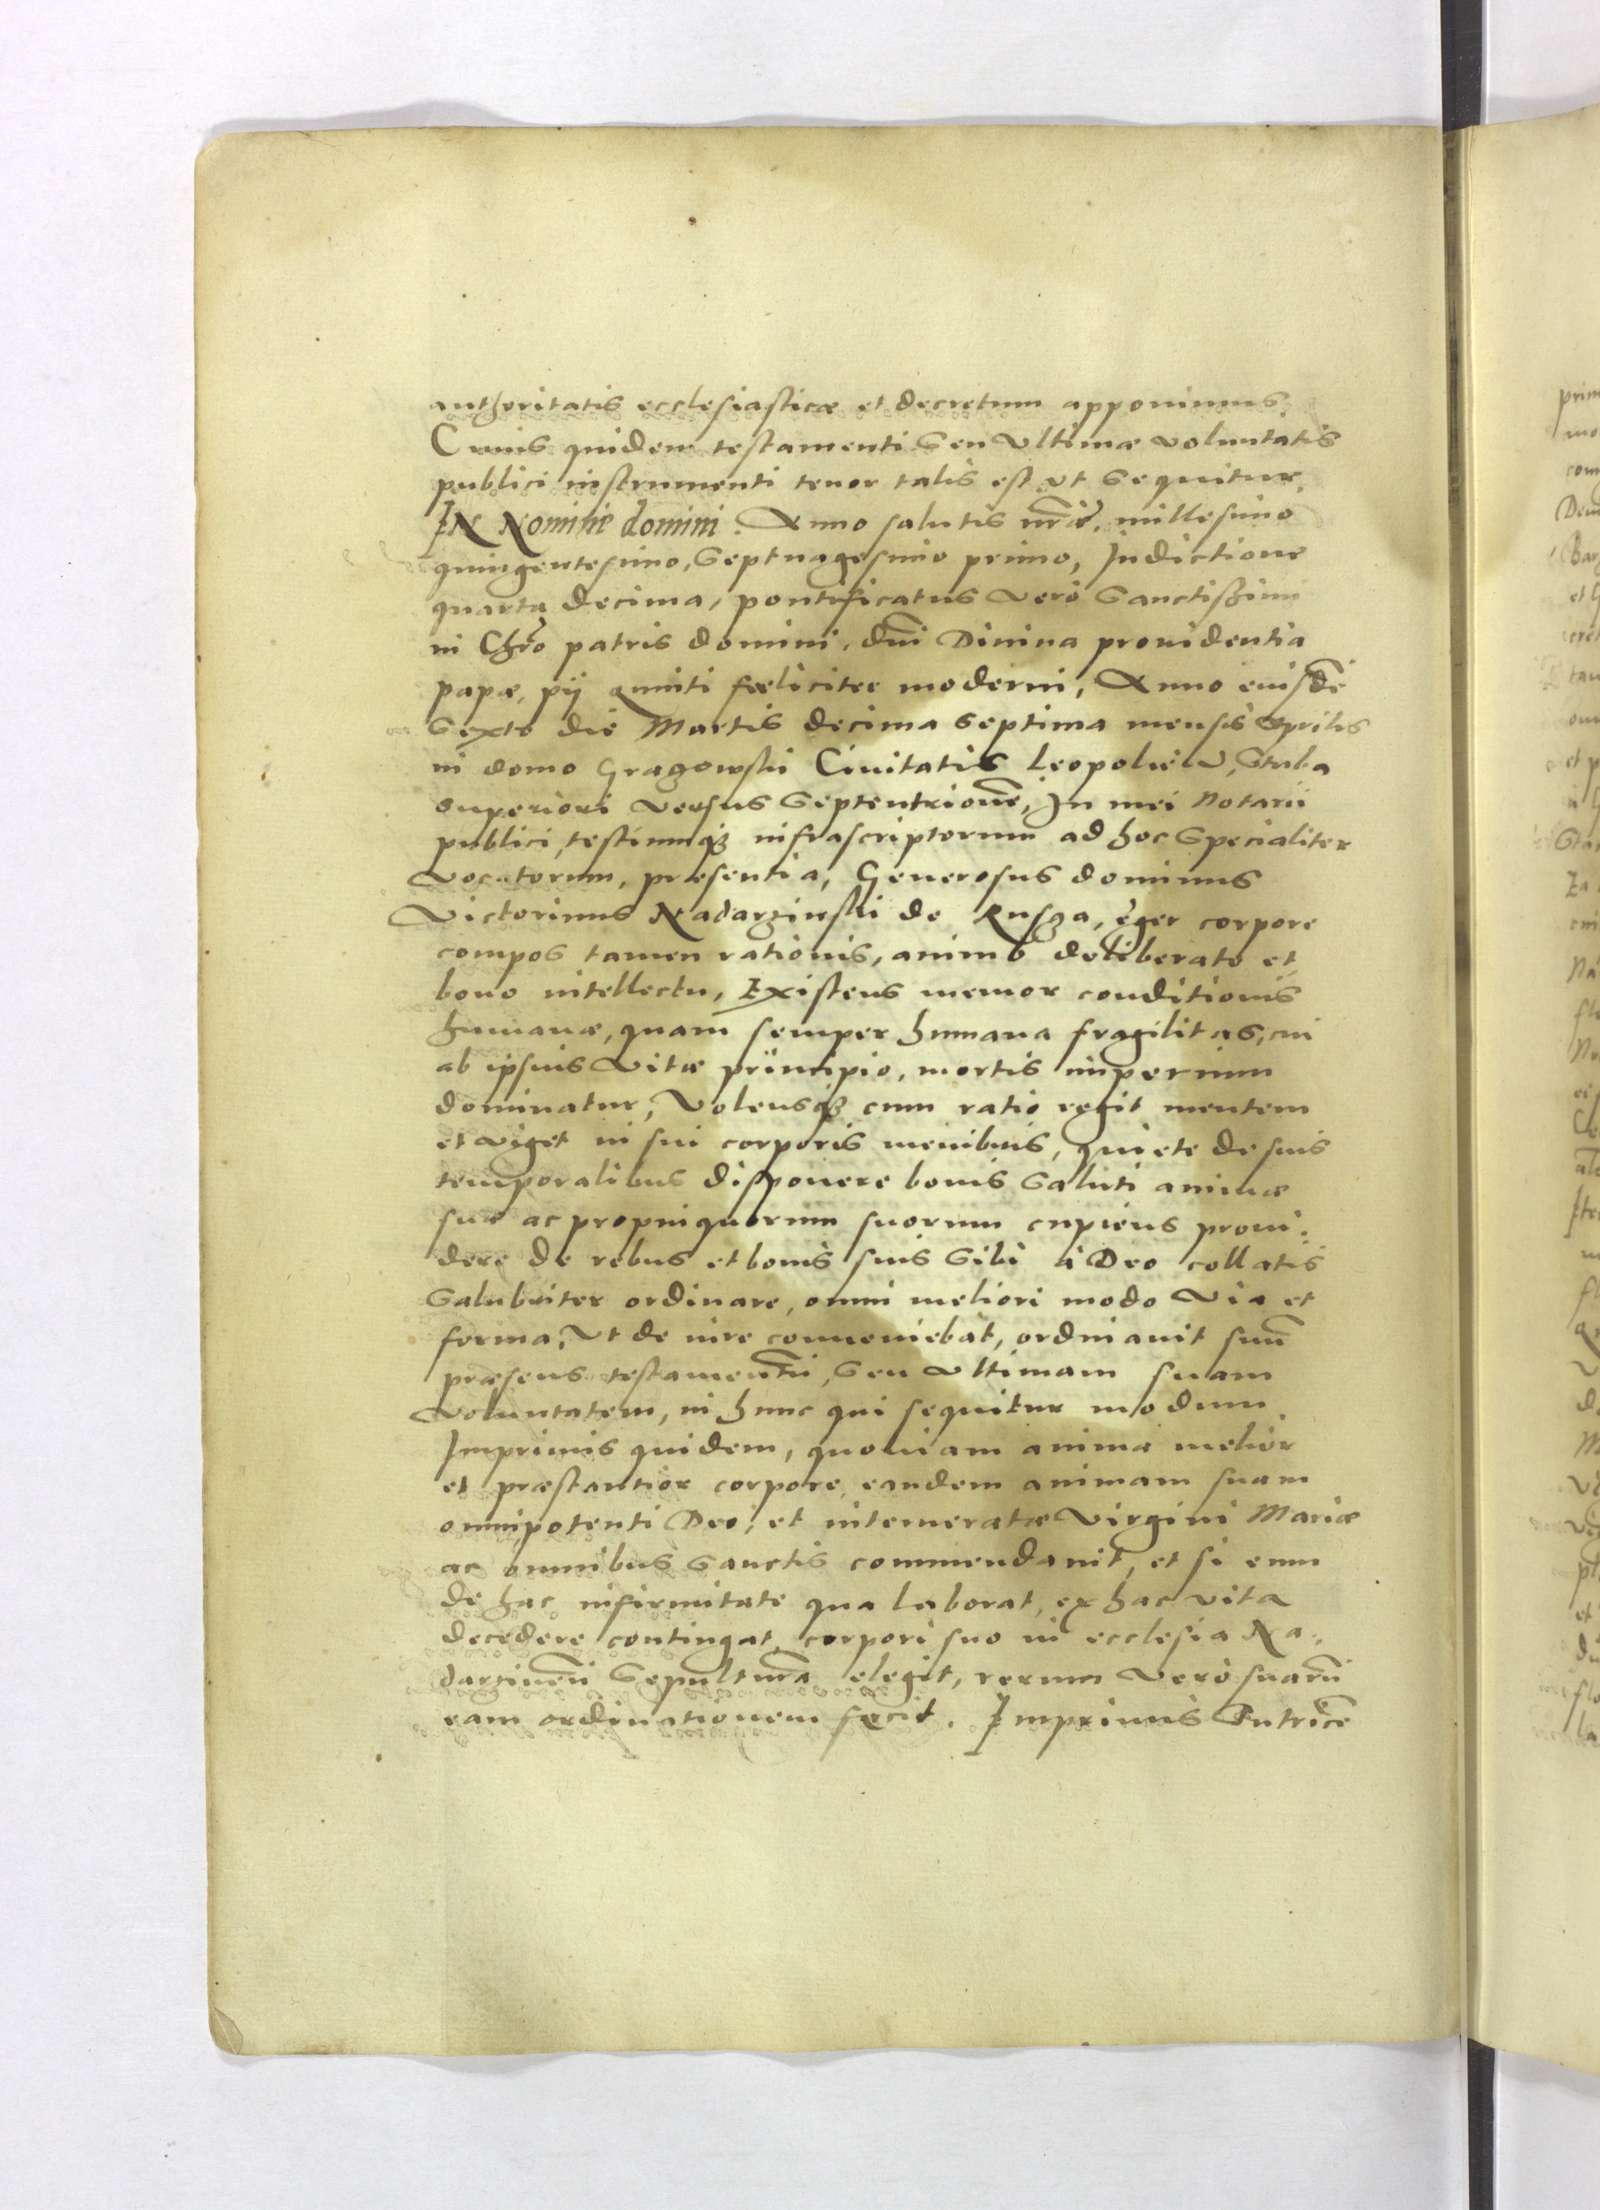 authoritatis ecclesiasticæ et decretum apponimus.
Cuius quidem testamenti Seu Vltimæ voluntatis
publici instrumenti tenor talis est vt Sequitur.
IN Nomine domini. Anno salutis nr̃æ, millesimo
quingentesimo, Septuagesimo primo, Indictione
quarta decima, pontificatus Vero Sanctißimi
in Chr̃o patris domini, dñi Diuina prouidentia
papæ, pij quinti fœliciter moderni, Anno eiusdẽ
Sexto die Martis decima septima mensis Aprilis
in domo Gragowski Ciuitatis Leopolieñ, Stuba
superiori versus Septentrionẽ, In mei Notarii
publici, testiumq₃ infrascriptorum ad hoc Specialiter
Vocatorum, præsentia, Generosus dominus
Victorinus Nadarzinski de Rusza, ęger corpore
compos tamen rationis, animo deliberato et
bono intellectu, Existens memor conditionis
humanæ, quam semper humana fragilitas, cui
ab ipsius Vitæ principio, mortis imperium
dominatur, Volensq₃ cum ratio regit mentem
et viget in sui corporis menibus, quiete de suis
temporalibus disponere bonis Saluti animæ
suæ ac propinquorum suorum cupiens proui-
dere de rebus et bonis suis Sibi à Deo collatis
Salubriter ordinare, omni meliori modo Via et
forma, Vt de iure conueniebat, ordinauit suũ
præsens testamentũ, Seu Vltimam suam
Voluntatem, in hunc qui sequitur modum
Imprimis quidem, quoniam anima melior
et præstantior corpore, eandem animam suam
omnipotenti Deo, et intemeratæ Virgini Mariæ
ac omnibus Sanctis commendauit, et si eum
de hac infirmitate qua laborat, ex hac vita
decedere contingat, corpori suo in ecclesia Na-
darzineñ Sepulturã elegit, rerum Vero suarũ
eam ordinationem fecit. Imprimis Tutricẽ